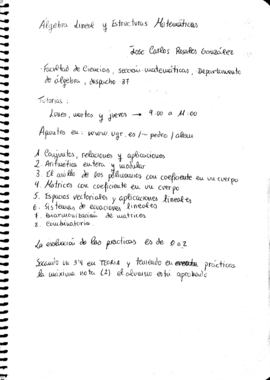 Algebra Lineal y Estructuras Matemáticas
Jose Carlos Rosales González
- Facultad de Ciencias, sección matemáticas, Departamento
de álgebra, despacho 37
Tutorias:
Lunes, martes y jueves → 9:00 a 11:00
Apuntes en: www.ugr.es/~pedro/
1. Conjuntos, relaciones y aplicaciones
2. Aritmética entera y modular
3. El anillo de los polinomios con coeficiente en un cuerpo
4. Matrices con coeficiente en un cuerpo
5. Espacios vectoriales y aplicaciones lineales
6. Sistemas de ecuaciones lineales
7. Diagonalización de matrices
8. Combinatoria.
La evaluación de las prácticas es de 0 a 2
Sacando un 3'4 en TEORIA y teniendo en prácticas
la máxima nota (2) el alumno está aprobado